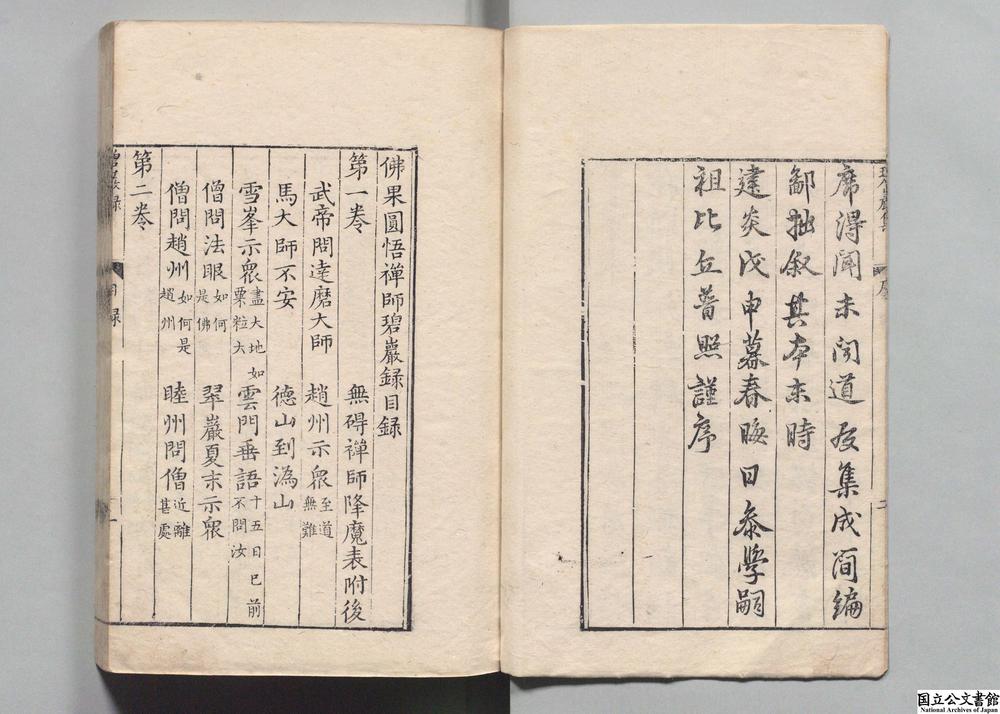 席得聞未聞道友集成簡編
鄙拙叙其本末時
建炎戊申暮春晦日叅學嗣
祖比丘普照謹序
佛果圓悟禪師碧巖録目録
第一卷 無碍禪師降魔表附後
武帝問達磨大師 趙州示衆至道無難
馬大師不安 德山到潙山
雪峯示衆盡大地如粟粒大 雲門垂語十五日已前不問汝
僧問法眼如何是佛 翠巖夏末示衆
僧問趙州如何是趙州 睦州問僧近離甚處
第二卷
国立公文書館
National Archives of Japan